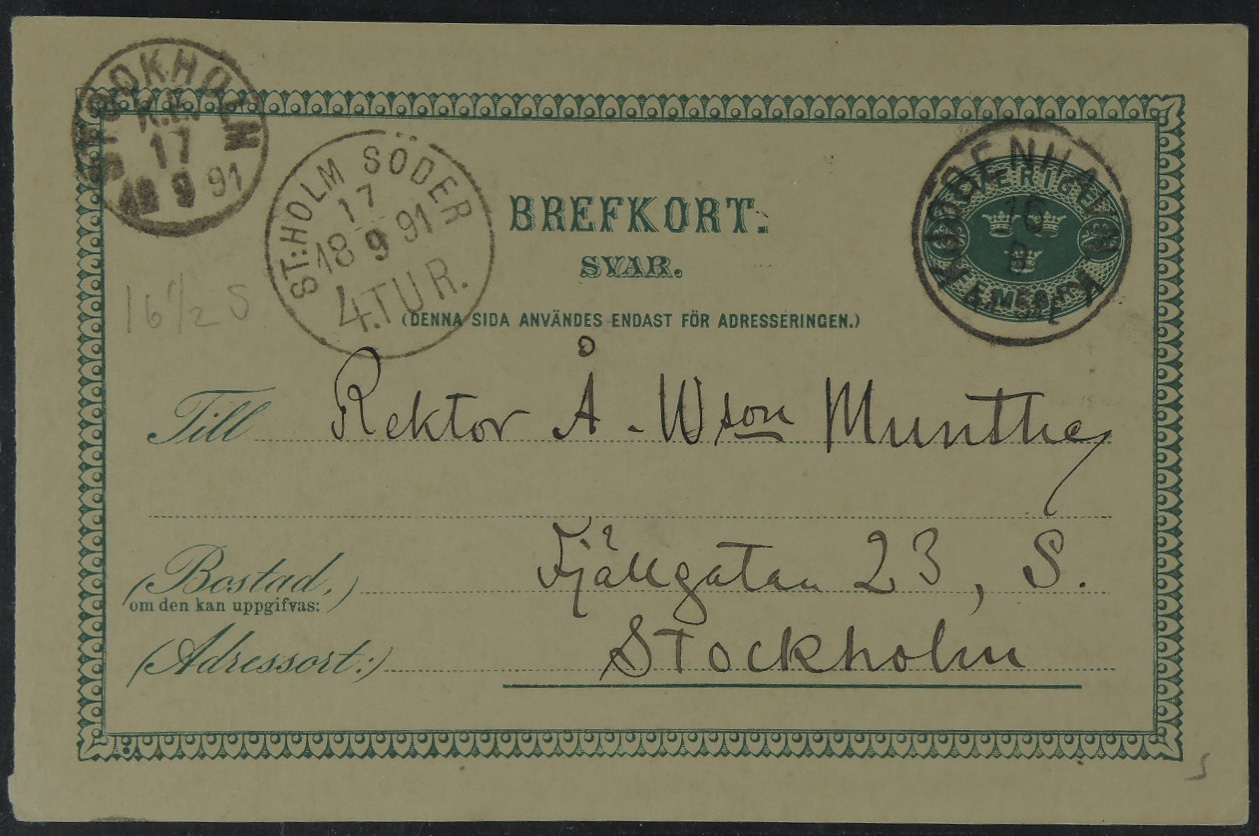 STOCKHOLM
K.E.
17
18 9 91
ST:HOLM SÖDER
17
18 9 91
4.TUR.
BREFKORT.
SVAR.
(DENNA SIDA ANVÄNDES ENDAST FÖR ADRESSERINGEN.)
KJØBENHAVN K
16
9
SVERIGE
FEM
16 1/2 S
Till Rektor Å. Wson Munthe,
Fjällgatan 23, S.
(Bostad,)
om den kan uppgifvas:
(Adressort:) Stockholm
S